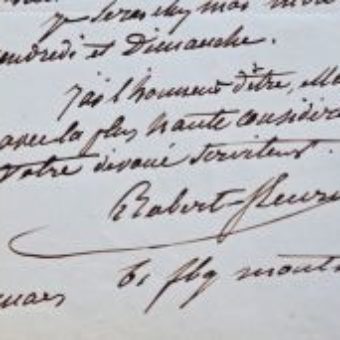 je serai chez moi
vendredi et Dimanche.
J'ai l'honneur d'être,
avec la plus haute considéra
Votre dévoué serviteur.
Robert-fleury
6, fbg mont
mars